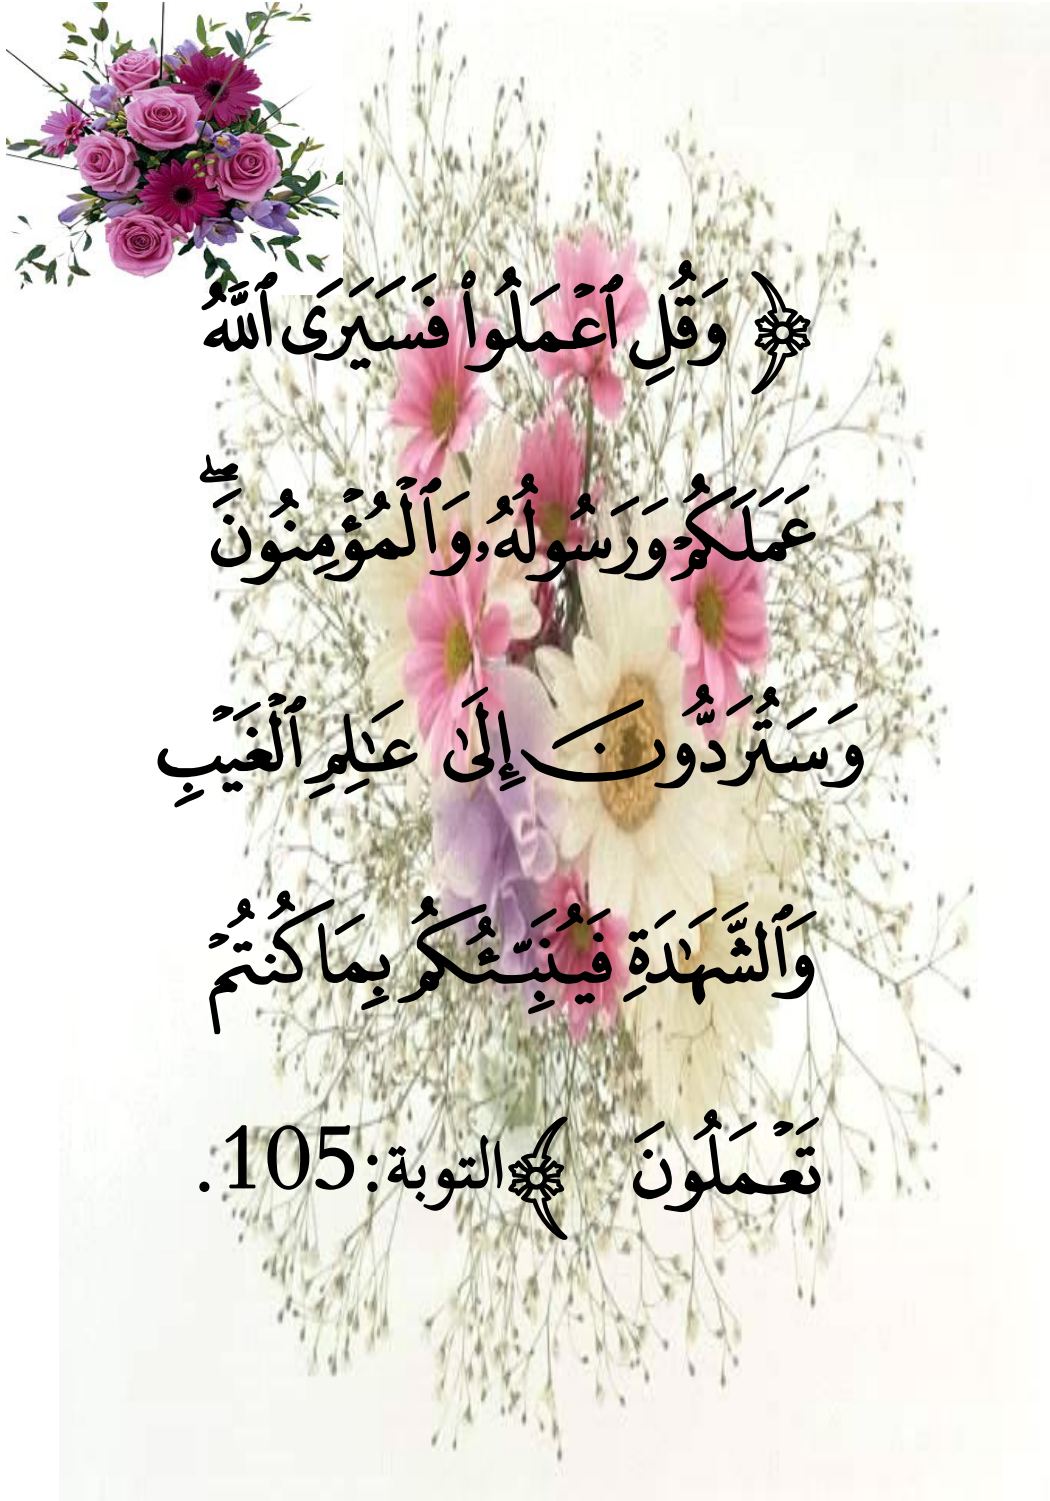 ﴿ وَقُلِ ٱعۡمَلُواْ فَسَيَرَى ٱللَّهُ
عَمَلَكُمۡ وَرَسُولُهُۥ وَٱلۡمُؤۡمِنُونَۖ
وَسَتُرَدُّونَ إِلَىٰ عَٰلِمِ ٱلۡغَيۡبِ
وَٱلشَّهَٰدَةِ فَيُنَبِّئُكُم بِمَا كُنتُمۡ
تَعۡمَلُونَ ﴾التوبة:105.